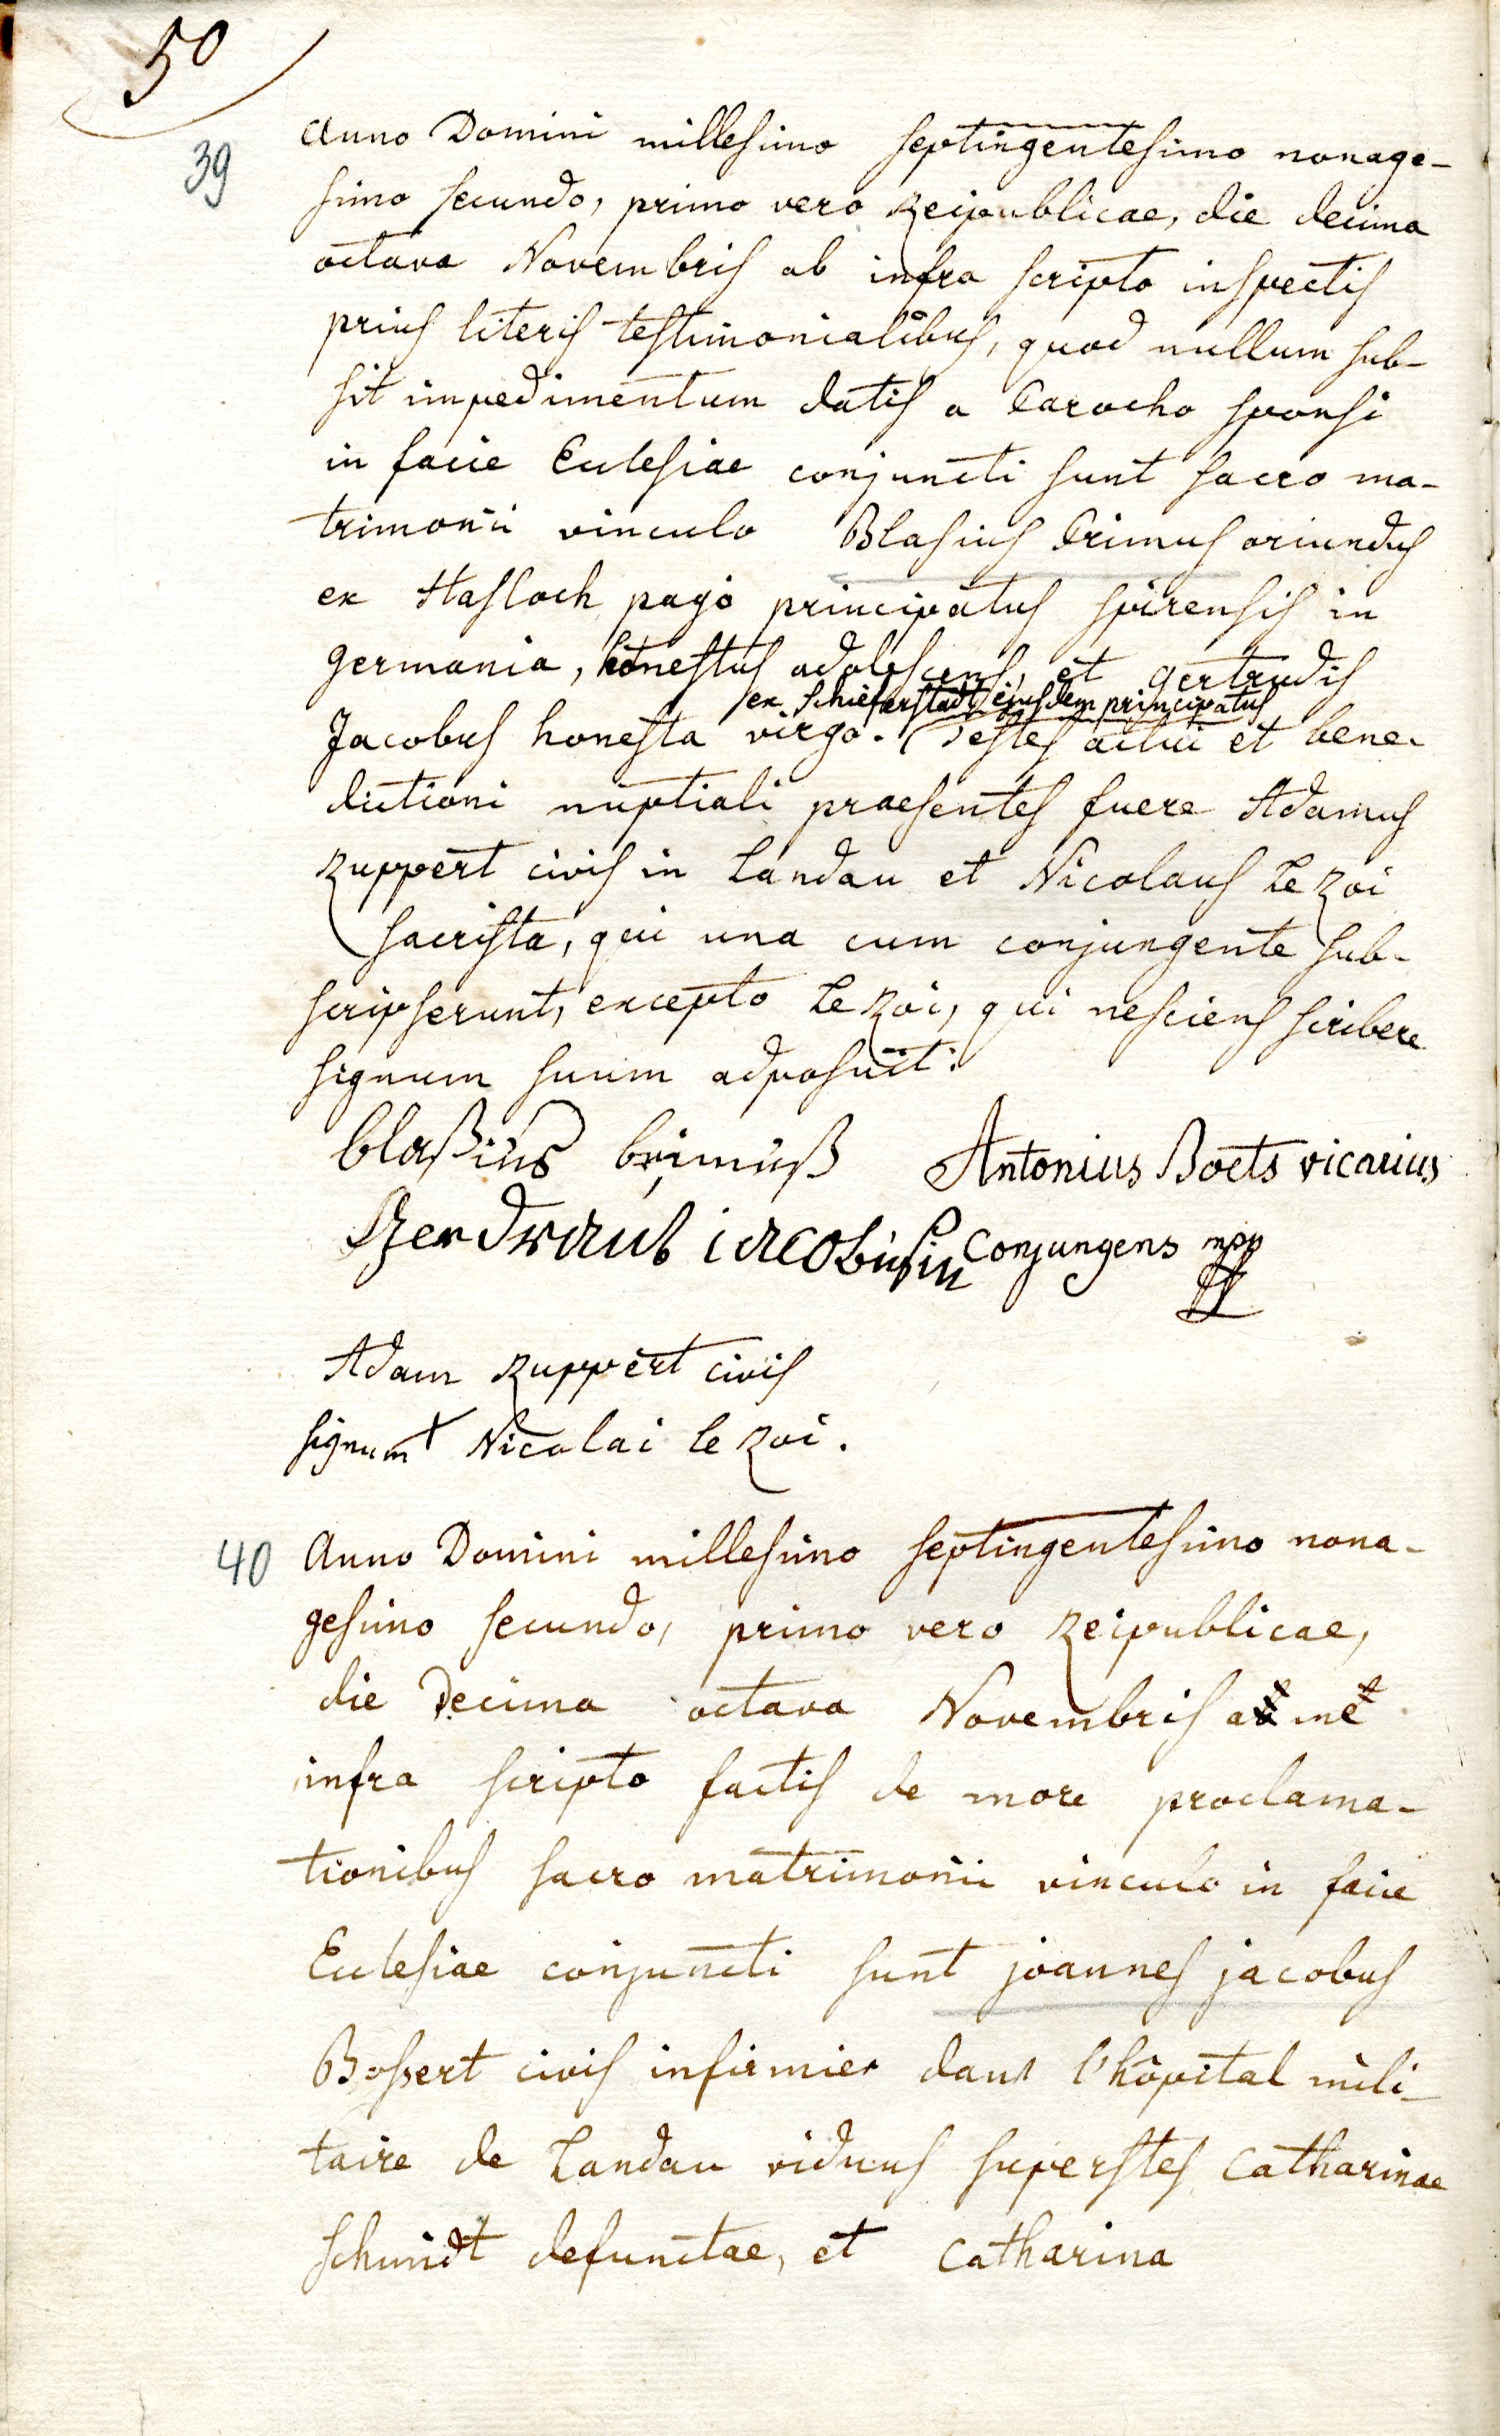 50
39
Anno Domini millesimo septingentesimo nonage-
simo secundo, primo vero Reipublicae, die decima
octava Novembris ab infra scripto inspectis
prius literis testimonialibus, quod nullum sub-
sit impedimentum datis a Parocho sponsi
in facie Eclesiae conjuncti sunt sacro ma-
trimonii vinculo Blasius Primus oriundus
ex Hasloch pago principatus spirensis in
germania, honestus adolescens, et gertrudis
ex Schieferstadt ejusdem principatus
Jacobus honesta virgo. Testes actui et bene-
dictioni nuptiali praesentes fuere Adamus
Ruppert civis in Landau et Nicolaus Le Roi
sacrista, qui una cum conjungente sub-
scripserunt, excepto Le Roi, qui nesciens scribere
signum suum adposuit.
blaßius brimuß Antonius Boets vicarius
Gerdraut iacobusin Conjungens mpp
Adam Ruppert civis
signum + Nicolai le Roi.
40
Anno Domini millesimo septingentesimo nona-
gesimo secundo, primo vero Reipublicae,
die Decima octava Novembris a me
infra scripto factis de more proclama-
tionibus sacro matrimonii vinculo in facie
Eclesiae conjuncti sunt joannes jacobus
Bossert civis infirmier dans l'hôpital mili-
taire de Landau viduus superstes Catharinae
Schmidt defunctae, et Catharina